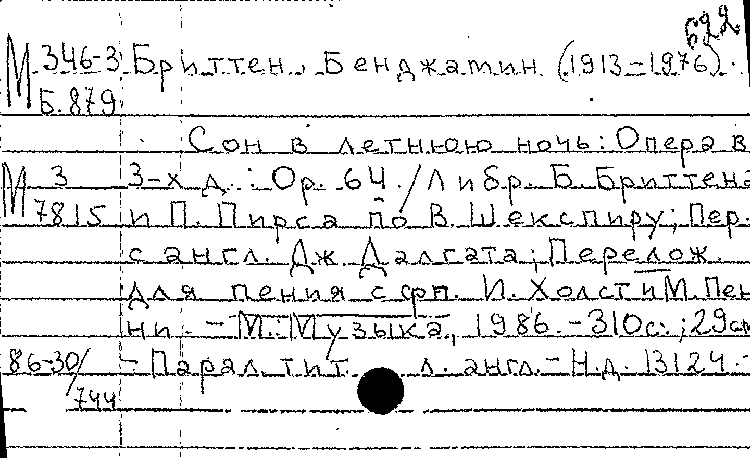 622
М 346-3 Бриттен, Бенджамин (1913-1976).
Б.879
Сон в летнюю ночь: Опера в
М 3 3-х д.: Ор. 64 / Либр. Б. Бриттена
7815 и П. Пирса по В. Шекспиру; Пер.
с англ. Дж. Далгата; Перелож.
для пения с фп. И. Холст и М. Пен
ни. - М.: Музыка, 1986. - 310 с.; 29 см
86-30/ - Парал. тит. л. англ. - Н.д. 13124. -
744